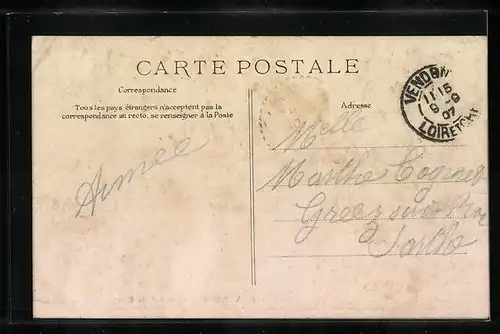 CARTE POSTALE
Correspondance
Tous les pays étrangers n'acceptent pas la
correspondance au recto, se renseigner à la Poste
Adresse
VENDOM
11 15
9 - 9
07
LOIR ET CHER
Aimée
Melle
Marthe
Greez sur Roc
Sarthe